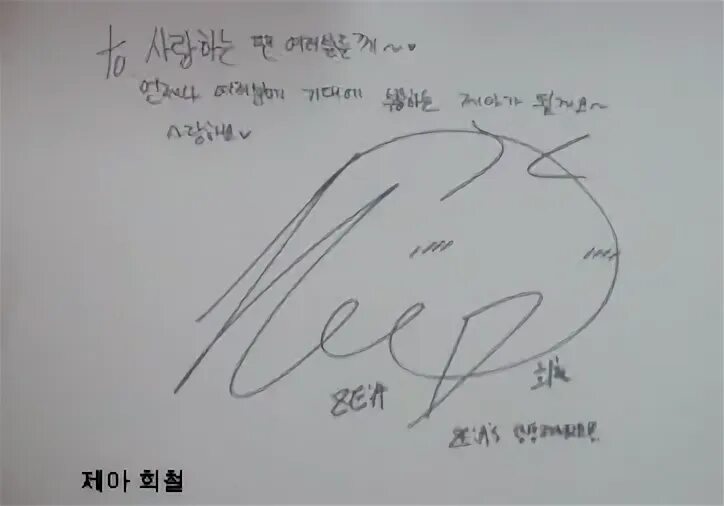 to 사랑하는 팬 여러분들께~♥
언제나 여러분에 기대에 부응하는 제아가 될게요~
사랑해요♥
ZE:A 희철
ZE:A's
제아 희철